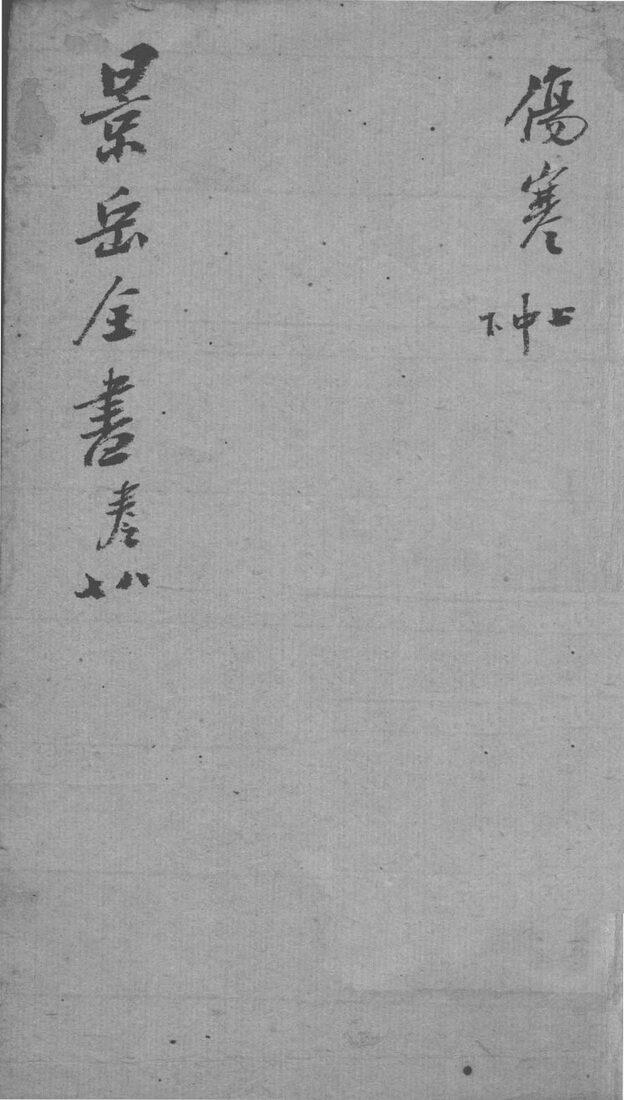 傷寒
上中下
景岳全書卷
七八